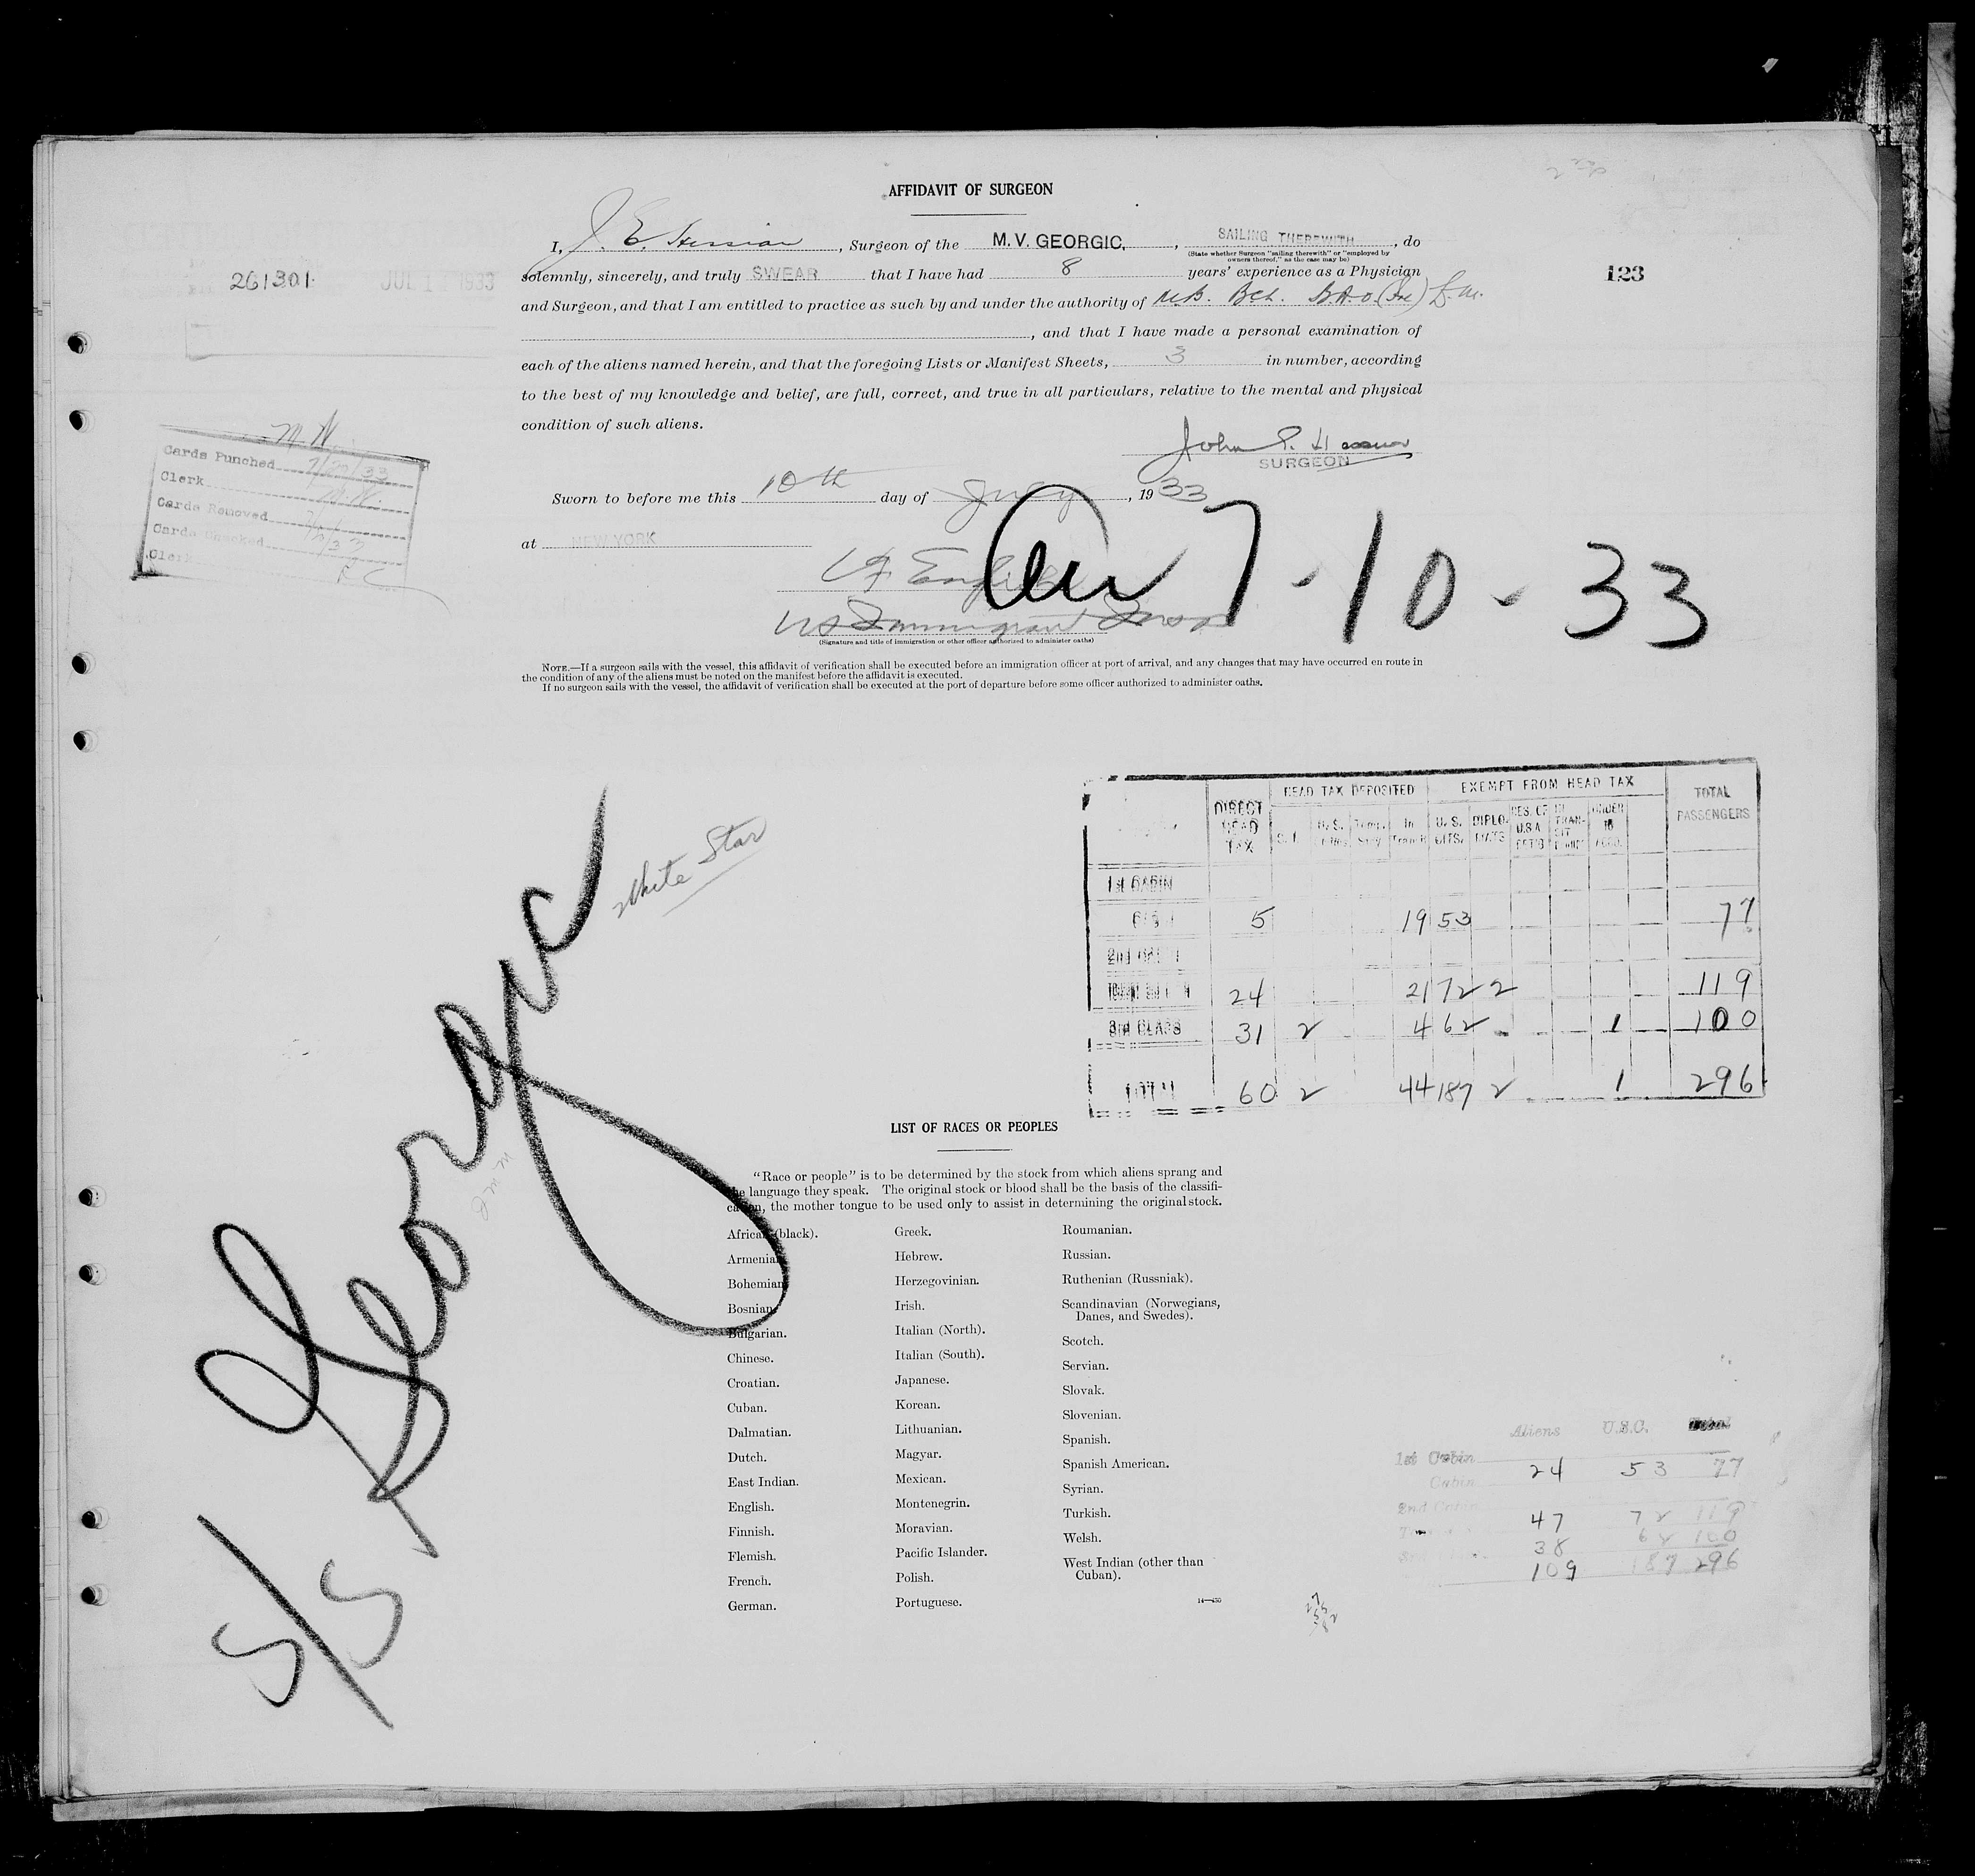 AFFIDAVIT OF SURGEON
I, J. E. Hession, Surgeon of the M.V. GEORGIC, SAILING THEREWITH, do
(State whether Surgeon "sailing therewith" or "employed by
owners thereof," as the case may be)
solemnly, sincerely, and truly SWEAR that I have had 8 years' experience as a Physician
261301
JUL 1 1933
123
and Surgeon, and that I am entitled to practice as such by and under the authority of M.B. Bch. B.A.O. (Ire)
, and that I have made a personal examination of
each of the aliens named herein, and that the foregoing Lists or Manifest Sheets, 3 in number, according
to the best of my knowledge and belief, are full, correct, and true in all particulars, relative to the mental and physical
condition of such aliens.
John
SURGEON
M.W.
Cards Punched 7/27/33
Clerk M.W.
Cards Removed
Cards Checked
Clerk
Sworn to before me this 10th day of July, 1933
at NEW YORK
7-10-33
US Immigrant
(Signature and title of immigration or other officer authorized to administer oaths)
NOTE.—If a surgeon sails with the vessel, this affidavit of verification shall be executed before an immigration officer at port of arrival, and any changes that may have occurred en route in
the condition of any of the aliens must be noted on the manifest before the affidavit is executed.
If no surgeon sails with the vessel, the affidavit of verification shall be executed at the port of departure before some officer authorized to administer oaths.
S/S Georgic
White Star
DIRECT HEAD TAX HEAD TAX DEPOSITED EXEMPT FROM HEAD TAX TOTAL PASSENGERS
In Transit U.S. CITS. DIPLOMATS RES. OF U.S.A. IN TRANSIT UNDER 16
1st CABIN
5 19 53 77
2nd CABIN
24 21 72 2 119
3rd CLASS 31 2 4 62 1 100
TOTAL 60 2 44 187 2 1 296
LIST OF RACES OR PEOPLES
"Race or people" is to be determined by the stock from which aliens sprang and
the language they speak. The original stock or blood shall be the basis of the classifi-
cation, the mother tongue to be used only to assist in determining the original stock.
African (black).
Armenian.
Bohemian.
Bosnian.
Bulgarian.
Chinese.
Croatian.
Cuban.
Dalmatian.
Dutch.
East Indian.
English.
Finnish.
Flemish.
French.
German.
Greek.
Hebrew.
Herzegovinian.
Irish.
Italian (North).
Italian (South).
Japanese.
Korean.
Lithuanian.
Magyar.
Mexican.
Montenegrin.
Moravian.
Pacific Islander.
Polish.
Portuguese.
Roumanian.
Russian.
Ruthenian (Russniak).
Scandinavian (Norwegians,
Danes, and Swedes).
Scotch.
Servian.
Slovak.
Slovenian.
Spanish.
Spanish American.
Syrian.
Turkish.
Welsh.
West Indian (other than
Cuban).
14—430
Aliens U.S.C. Total
1st Cabin
Cabin 24 53 77
2nd Cabin
47 72 119
38 62 100
109 187 296